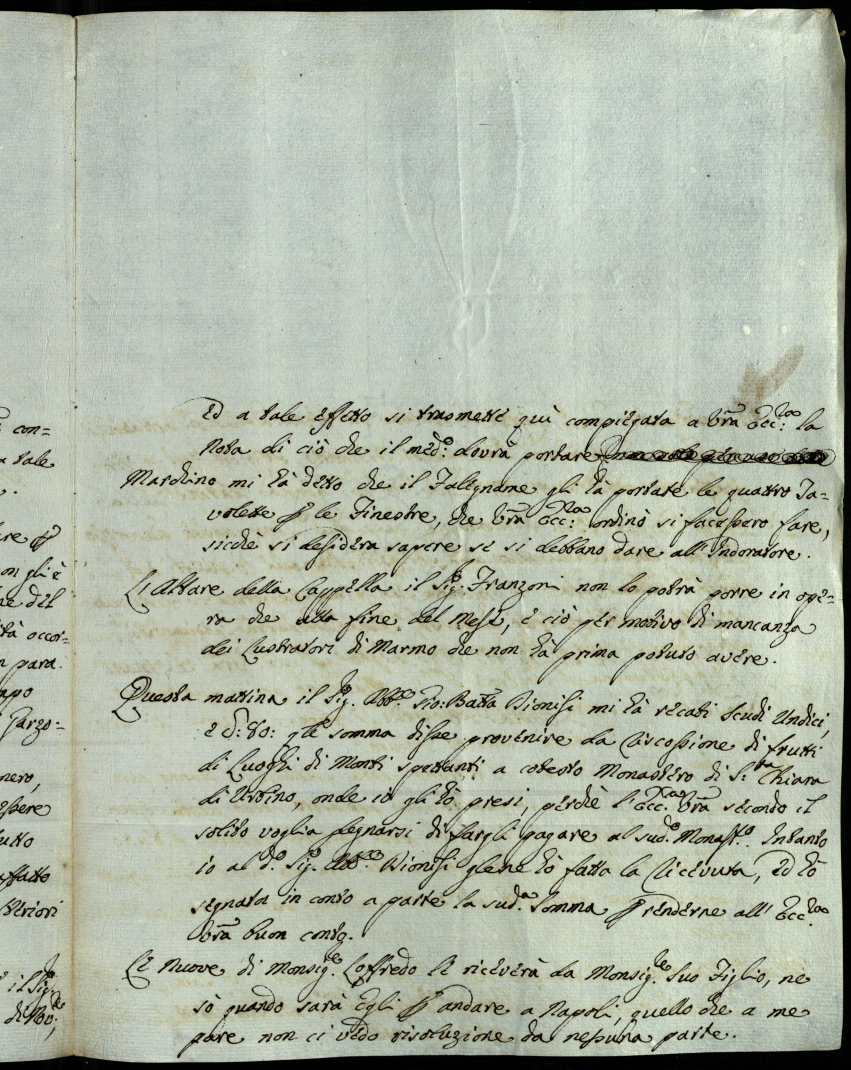 con=
a tale
Ed a tale effetto si trasmette quì compiegata a Vrã Ecc:za la
Nota di ciò che il med.º dovrà portare
Marchino mi hà detto che il Falegname gli hà portate le quattro Ta=
volette p le Finestre, che Vrã Ecc:za ordinò si facessero fare,
sicchè si desidera sapere se si debbano dare all'Indoratore.
L'Altare della Cappella il Sig.r Franzoni non lo potrà porre in ope=
ra che alla fine del Mese, e ciò per motivo di mancanza
dei Lustratori di Marmo che non hà prima potuto avere.
Questa mattina il Sig. Abb.e Gio: Batta Dionisi mi hà recati Scudi Undici,
e d: 80: qle somma disse provenire da Riscossione di frutti
di Luoghi di Monti spettanti a cotesto Monastero di S.ta Chiara
di Urbino, onde io gli hò presi, perchè l'Ecc.za Vrã secondo il
solito voglia degnarsi di fargli pagare al sud.º Monast.º. Intanto
io al d.º Sig. Abb.e Dionisi gliene hò fatta la Ricevuta, ed hò
segnata in conto a parte la sud.a Somma p renderne all'Ecc.za
Vrã buon conto.
Le Nuove di Monsig.e Loffredo le riceverà da Monsig.e Suo Figlio, ne
sò quando sarà Egli p andare a Napoli, quello che a me
pare non ci vedo risoluzione da nessuna parte.
are p
on gli è
ne del
ità occor=
n para
apo
Garzo=
nero,
essere
utto
affatto
steriori
il Sig.